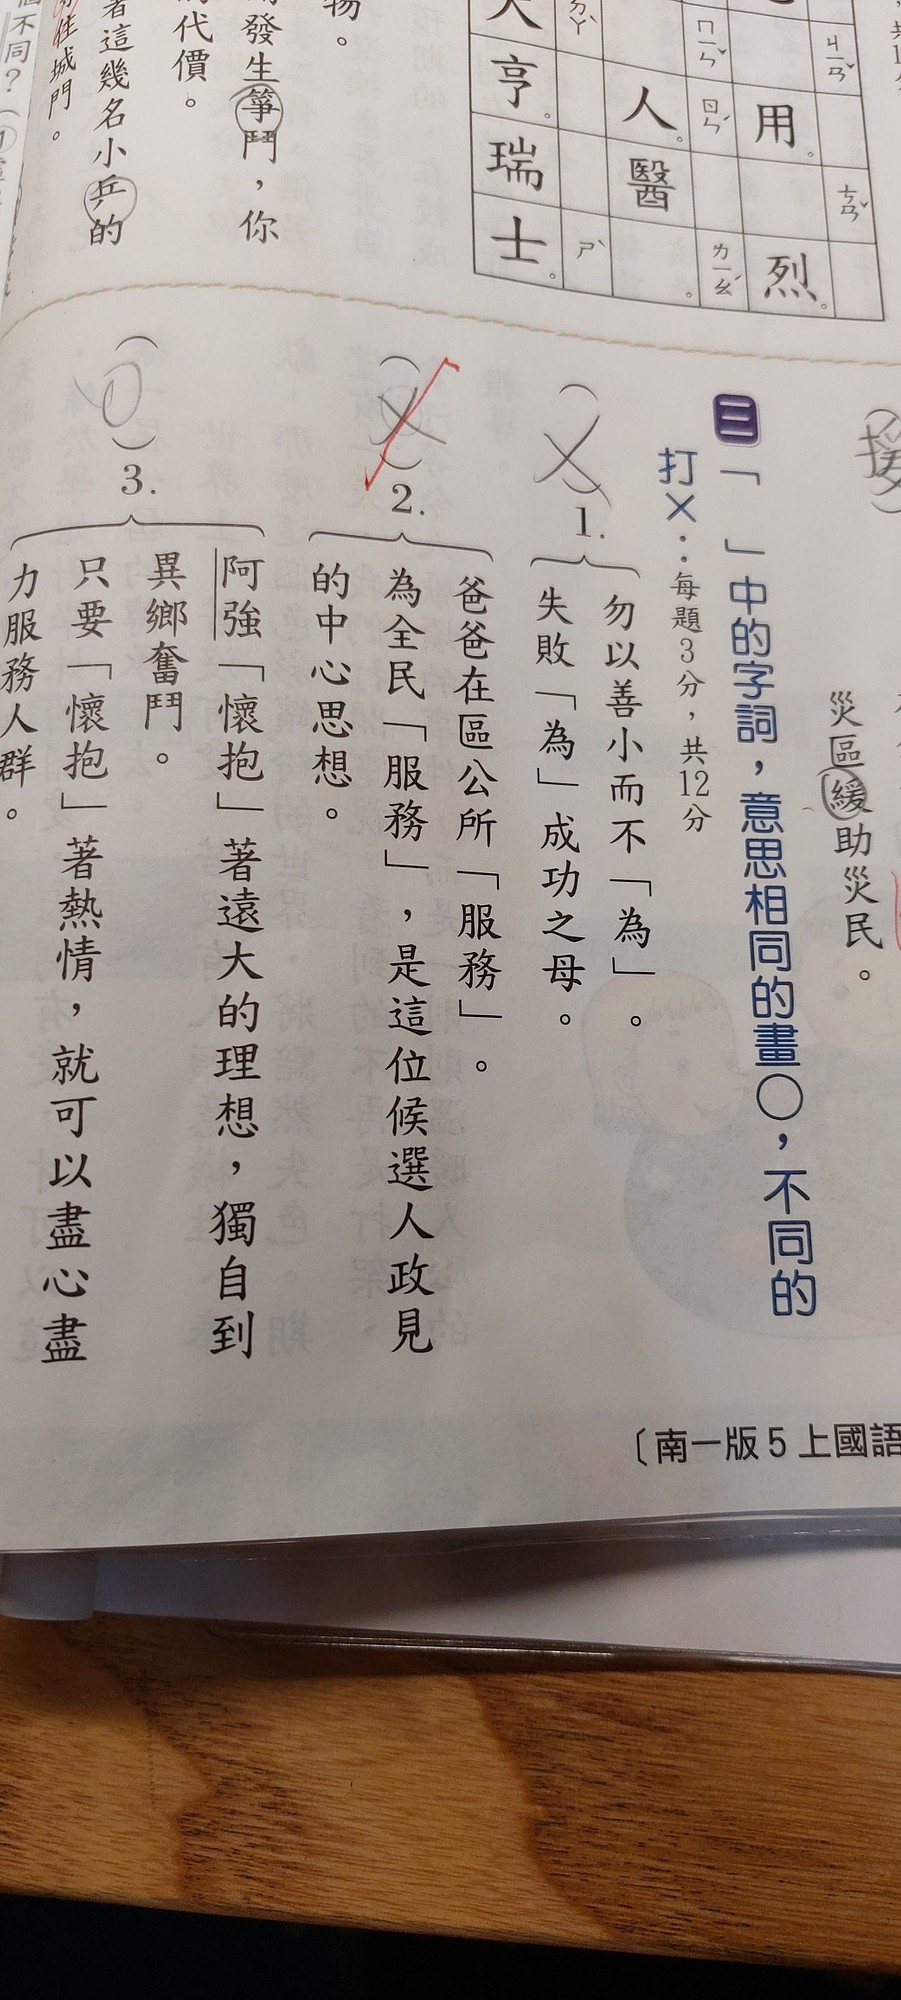 緩
災區緩助災民。
三「　」中的字詞，意思相同的畫○，不同的
打×：每題3分，共12分
(×)1.
勿以善小而不「為」。
失敗「為」成功之母。
(×)2.
爸爸在區公所「服務」。
為全民「服務」，是這位候選人政見
的中心思想。
(○)3.
阿強「懷抱」著遠大的理想，獨自到
異鄉奮鬥。
只要「懷抱」著熱情，就可以盡心盡
力服務人群。
用
烈。
ㄌㄧㄝˋ
人。
醫
亨。
瑞
士。
物。
發生箏鬥，你
代價。
著這幾名小乒的
住城門。
不同？
〔南一版5上國語